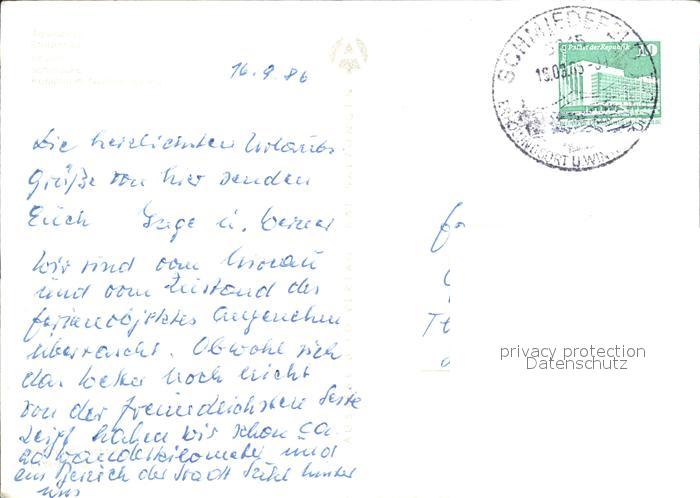 16.9.86
SCHMIEDEFELD
Palast der Republik
10
ERHOLUNGSORT U. WIN
Die herzlichsten Urlaubs-
grüße von hier senden
Euch Inge u. Werner
Wir sind vom Niveau
und vom Zustand des
Ferienobjektes angenehm
überrascht. Obwohl sich
das Wetter noch nicht
von der freundlichsten Seite
zeigt haben wir schon ca.
Wanderkilometer und
ein Bereich der Stadt Suhl hinter
uns
privacy protection
Datenschutz